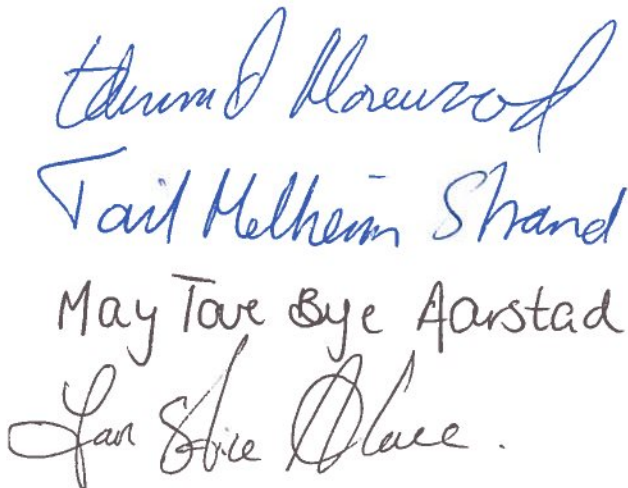 Edmund Morewood
Tail Melheim Strand
May Tove Bye Aarstad
Jan